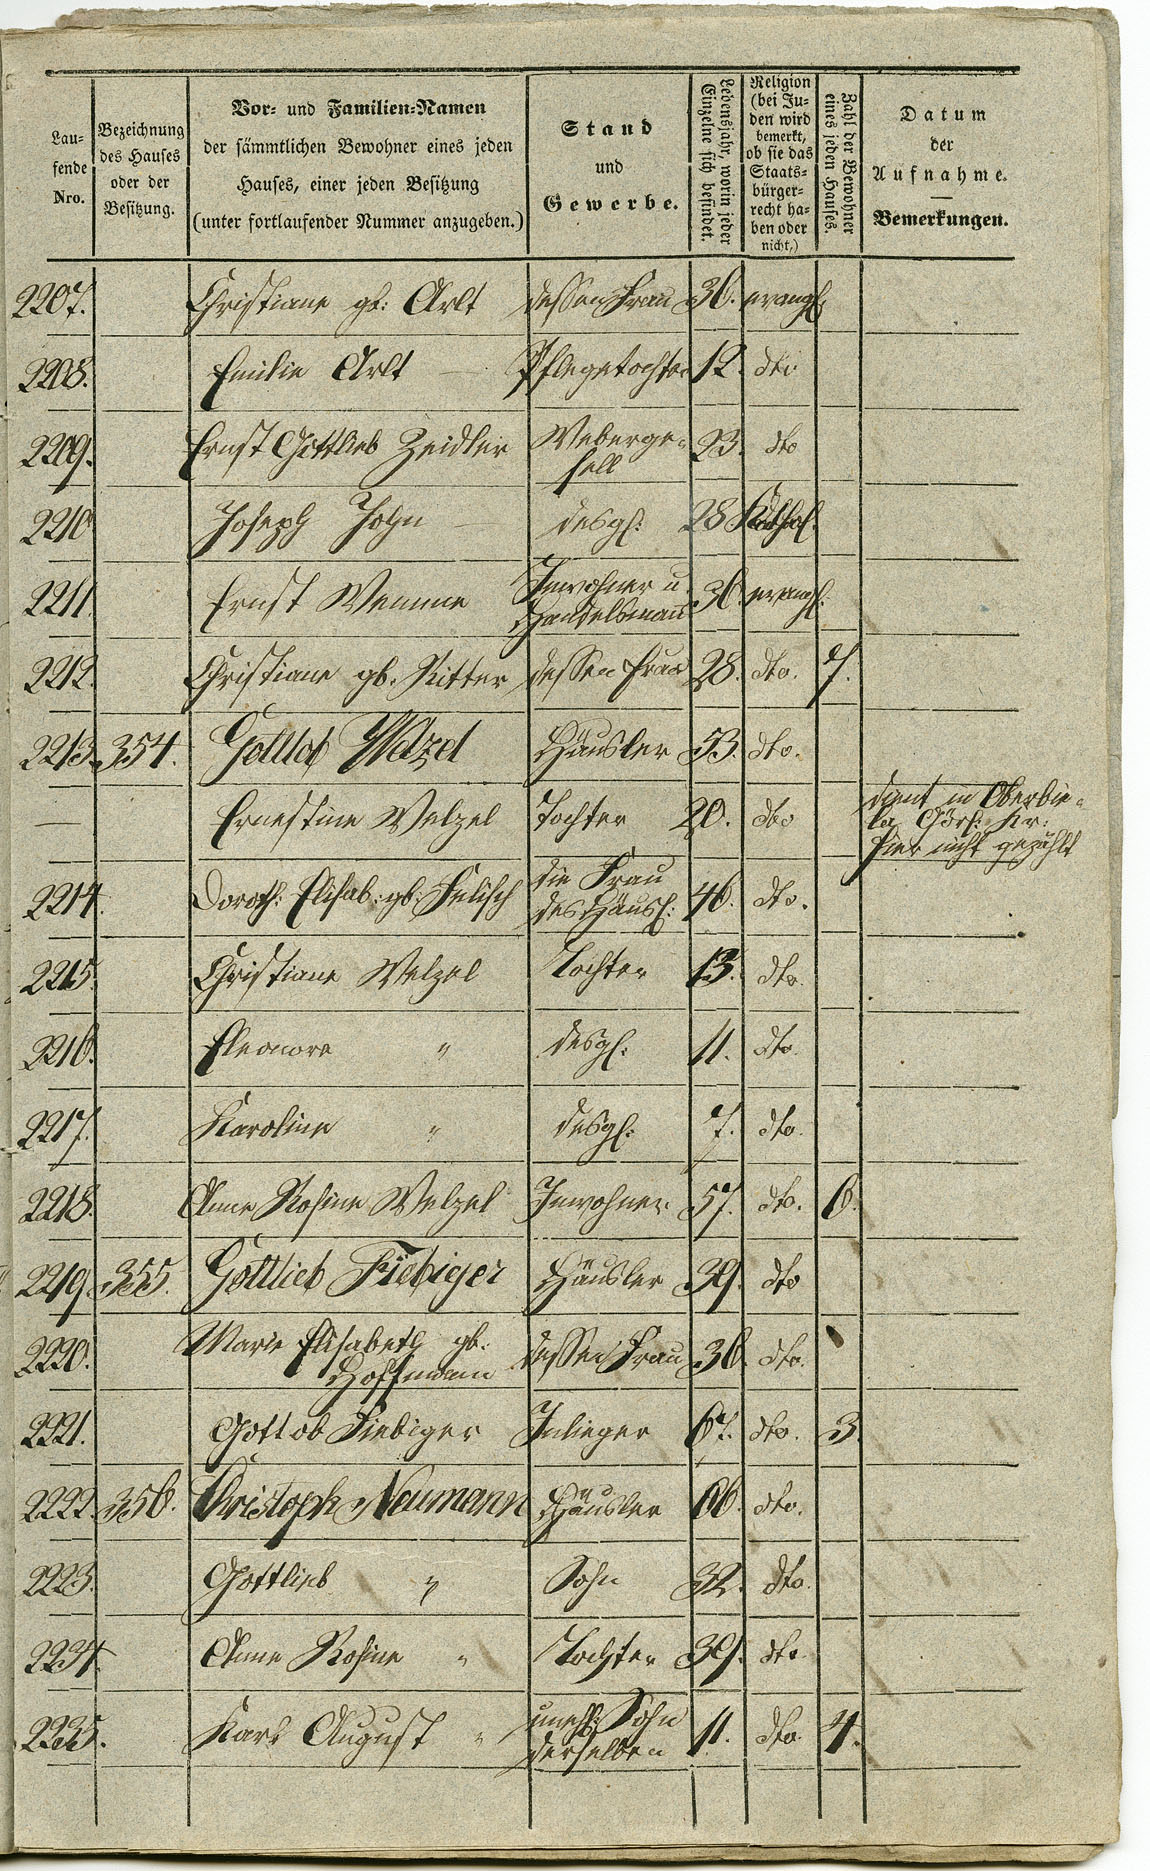 Lau-
fende
Nro.
Bezeichnung
des Hauses
oder der
Besitzung.
Vor- und Familien-Namen
der sämmtlichen Bewohner eines jeden
Hauses, einer jeden Besitzung
(unter fortlaufender Nummer anzugeben.)
Stand
und
Gewerbe.
Lebensjahr, worin jeder
Einzelne sich befindet.
Religion
(bei Ju-
den wird
bemerkt,
ob sie das
Staats-
bürger-
recht ha-
ben oder
nicht.)
Zahl der Bewohner
eines jeden Hauses.
Datum
der
Aufnahme.
Bemerkungen.
2207. Christiane gb: Arlt dessen Frau 36. evangl.
2208. Emilie Arlt — Pflegetochter 12. dto
2209. Ernst Gottlieb Zeidler Weberge-
sell 23. dto
2210 Joseph John — desgl: 28 Kathol.
2211. Ernst Wemme Inwohner u.
Handelsmann 36. evangl.
2212. Christiane gb. Ritter dessen Frau 28. dto. 7.
2213. 354. Gottlob Welzel Häusler 53. dto.
— Ernestine Welzel Tochter 20. dto dient in Oberbie-
la Görl: Kr:
hier nicht gezählt
2214. Doroth: Elisab: gb: Felisch die Frau
des Häusl: 46. dto.
2215. Christiane Welzel Tochter 13. dto.
2216. Eleonore " desgl: 11. dto.
2217. Karoline " desgl: 7. dto.
2218. Anne Rosine Welzel Inwohner. 57. dto. 6.
2219. 355. Gottlieb Fiebiger Häusler 39. dto
2220. Marie Elisabeth gb.
Hoffmann dessen Frau 36. dto.
2221. Gottlob Fiebiger Inlieger 67. dto. 3.
2222. 356. Christoph Neumann Häusler 66. dto.
2223. Gottlieb " Sohn 32. dto.
2234. Anne Rosine " Tochter 39. dto
2235. Karl August " unehl: Sohn
derselben 11. dto. 4.